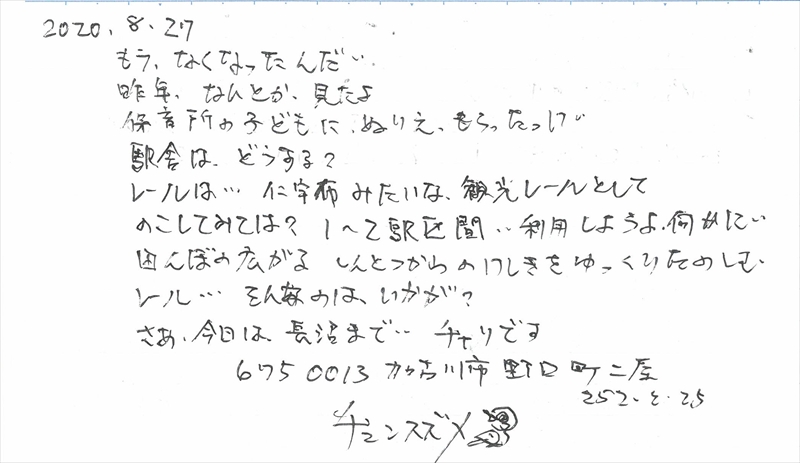 2020.8.27
もう、なくなったんだ‥
昨年、なんとか、見たよ
保育所の子どもに、ぬりえ、もらったっけ‥
駅舎は、どうする?
レールは… 仁宇布みたいな、観光レールとして
のこしてみては? 1〜2駅区間‥利用しようよ、何かに‥
田んぼの広がる しんとつからのけしきをゆっくりたのしむ
レール… そん案のは、いかが?
さあ、今日は、長沼まで‥ チャリです
675 0013 加古川市 野口町 二屋
252.2.25
チュンスズメ